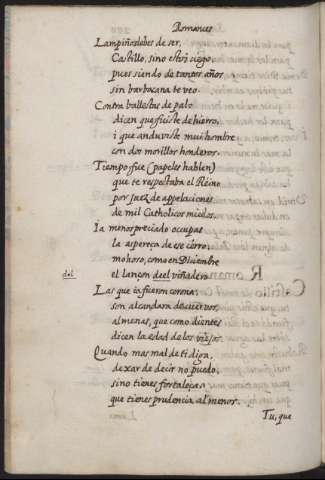 Romances
Lampiño debes de ser,
Castillo, sino estoi ciego
pues siendo de tantos años
sin barbacana te veo.
Contra ballestas de palo
dicen que fuiste de hierro,
i que anduviste mui hombre
con dos morillos honderos.
Tiempo fue (papeles hablen)
que te respectaba el Reino
por Juez de appelaciones
de mil Catholicos miedos.
Ia menospreciado ocupas
la aspereça de ese cerro,
mohoso, como en Diciembre
el lançon deel viñadero.
del
Las que ia fueron corona
son alcandara de cuervos,
almenas, que como dientes
dicen la edad de los viejos.
Quando mas mal de ti diga,
dexar de decir no puedo,
sino tienes fortaleça,
que tienes prudencia al menos.
Tu, que